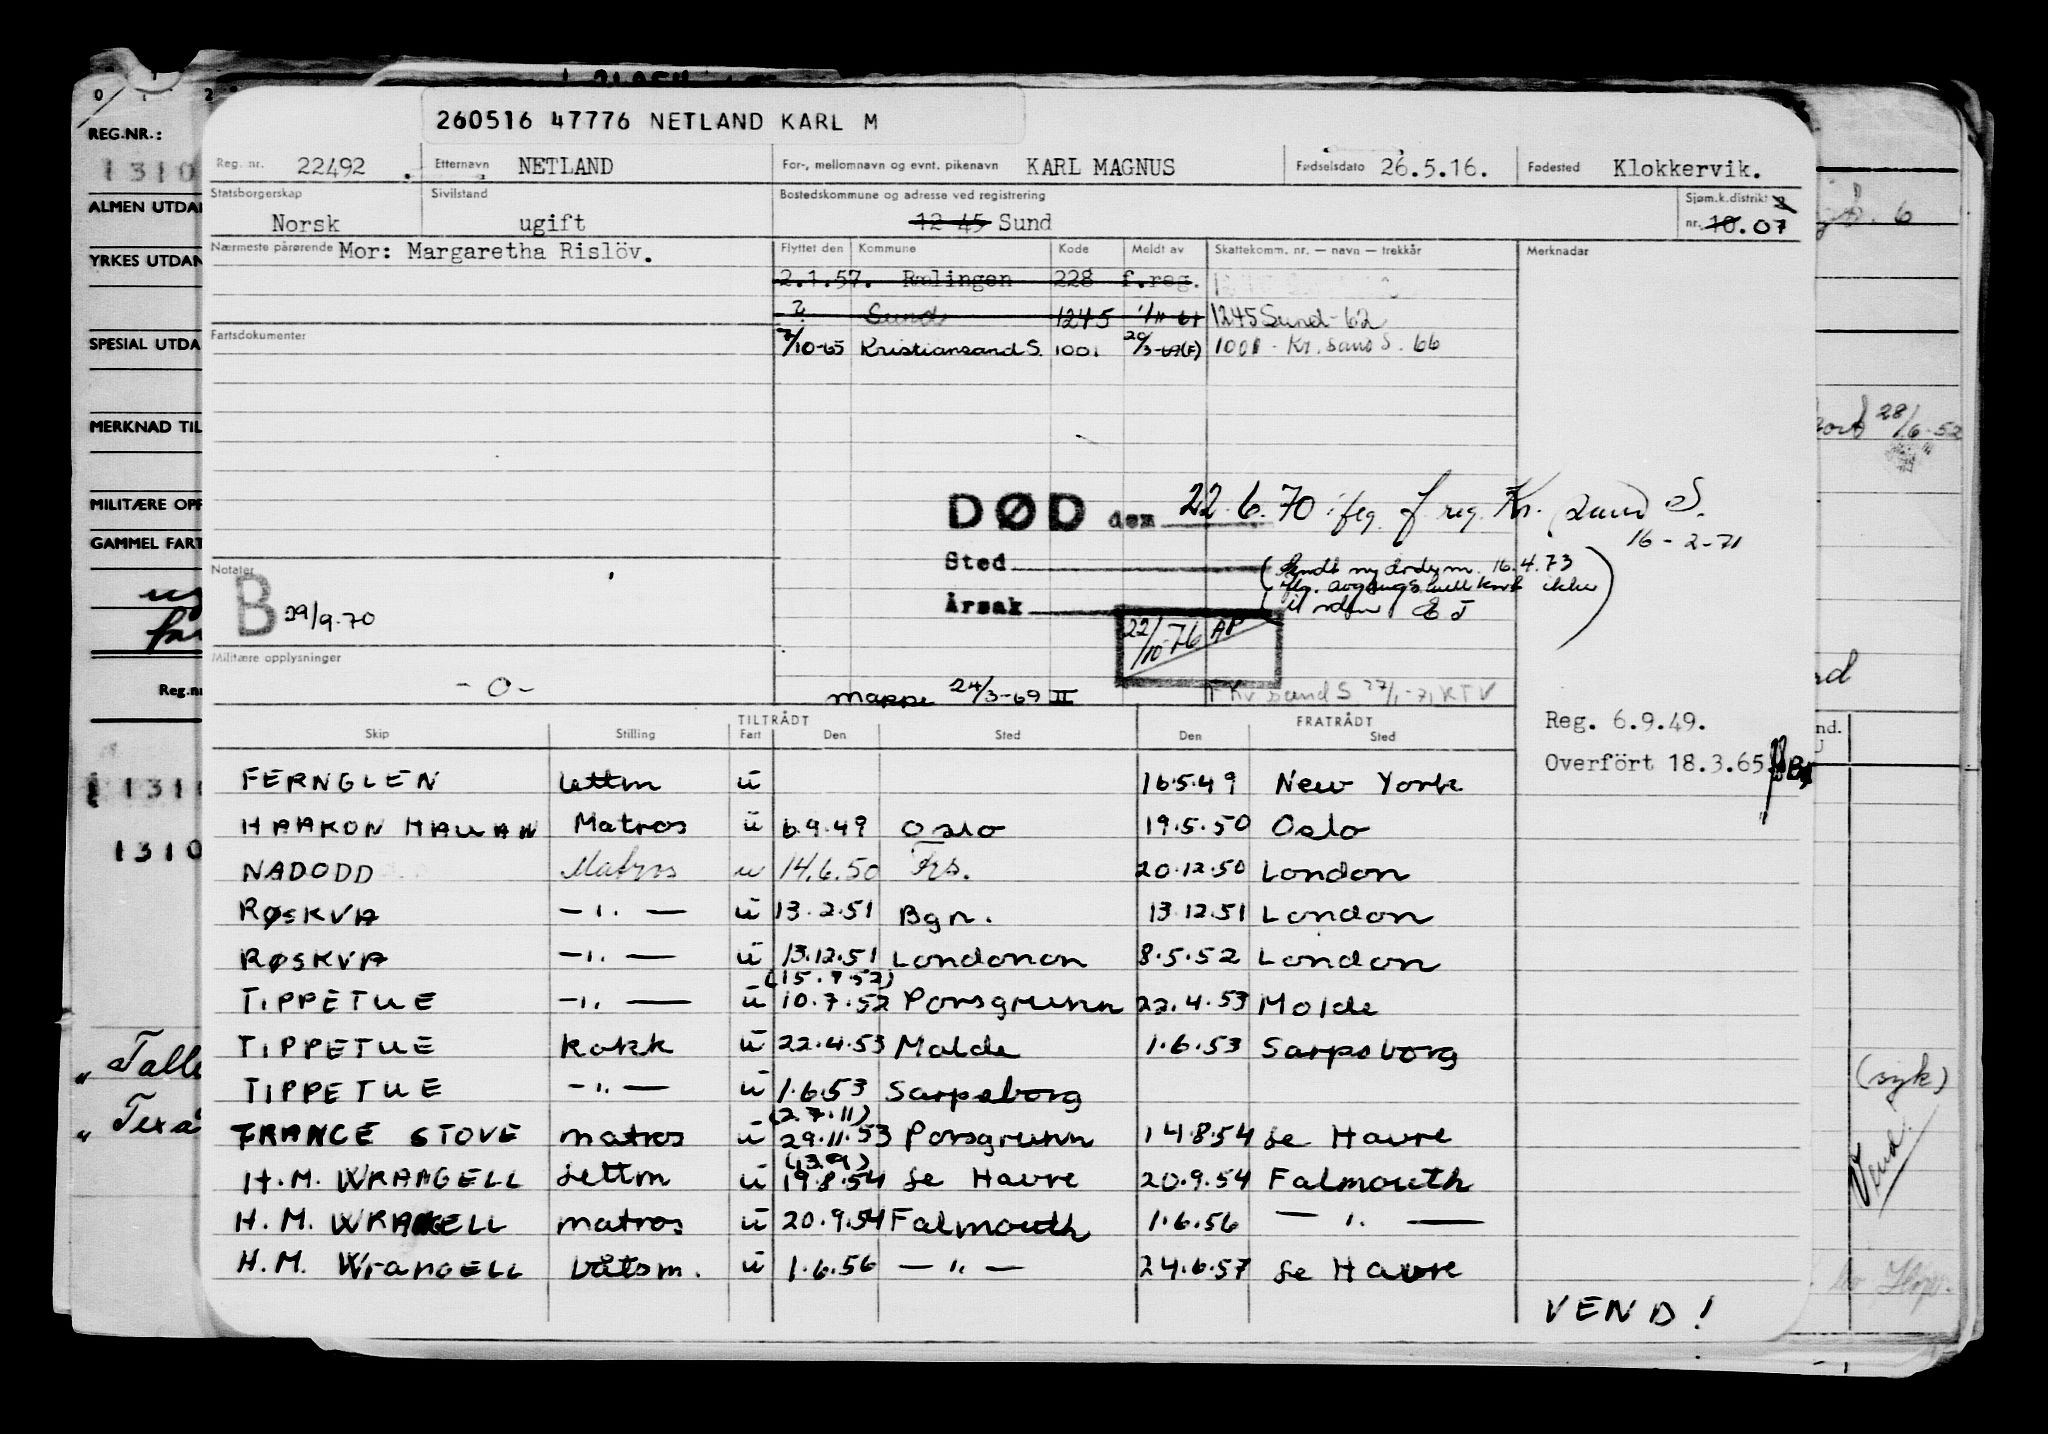 260516 47776 NETLAND KARL M
REG.NR.:
Reg. nr. 22492 Etternavn NETLAND For-, mellomnavn og evnt. pikenavn KARL MAGNUS Fødselsdato 26.5.16. Fødested Klokkervik.
1310
ALMEN UTDAN
Statsborgerskap Norsk Sivilstand ugift Bostedskommune og adresse ved registrering 12 45 Sund Sjøm.k.distrikt nr. 10. 07
YRKES UTDAN
Nærmeste pårørende Mor: Margaretha Rislöv. Flyttet den Kommune Kode Meldt av Skattekomm. nr. — navn — trekkår Merknader
2.1.57. Rælingen 228 f.reg.
? Sund 1245 1245 Sund-62
SPESIAL UTDA
Fartsdokumenter 7/10-65 Kristiansand S. 1001 20/3-69(F) 1001 - Kr. sand S. 66
MERKNAD TIL 28/6-52
MILITÆRE OPP
DØD den 22.6.70 iføg. f reg. Kr. sand S.
16-2-71
GAMMEL FART
Sted
Årsak
16.4.73
ikke
Notater
B 29/9.70
22/10-76 AP
Militære opplysninger
-0-
mappe 24/3-69 II
F Kr sand S 27/1-71 KTV
Reg.nr
Reg. 6.9.49.
Overfört 18.3.65
TILTRÅDT FRATRÅDT
Skip Stilling Fart Den Sted Den Sted
FERNGLEN lettm u 16.5.49 New York
HAAKON HAUAN Matros u 6.9.49 Oslo 19.5.50 Oslo
NADODD Matros u 14.6.50 Frs. 20.12.50 London
RØSKVA —"— u 13.2.51 Bgn. 13.12.51 London
RØSKVA —"— u 13.12.51 Londonon 8.5.52 London
(15.7.52)
TIPPETUE —"— u 10.7.52 Porsgrunn 22.4.53 Molde
TIPPETUE kokk u 22.4.53 Molde 1.6.53 Sarpsborg
TIPPETUE —"— u 1.6.53 Sarpsborg
(27.11)
FRANCE STOVE matros u 29.11.53 Porsgrunn 14.8.54 Le Havre
(13.9)
H.M. WRANGELL Lettm u 19.8.54 Le Havre 20.9.54 Falmouth
H.M. WRANGELL matros u 20.9.54 Falmouth 1.6.56 —"—
H.M. WRANGELL båtsm. u 1.6.56 —"— 24.6.57 Le Havre
VEND!
1310
" Talle
" Texa
(syk)
Vend.